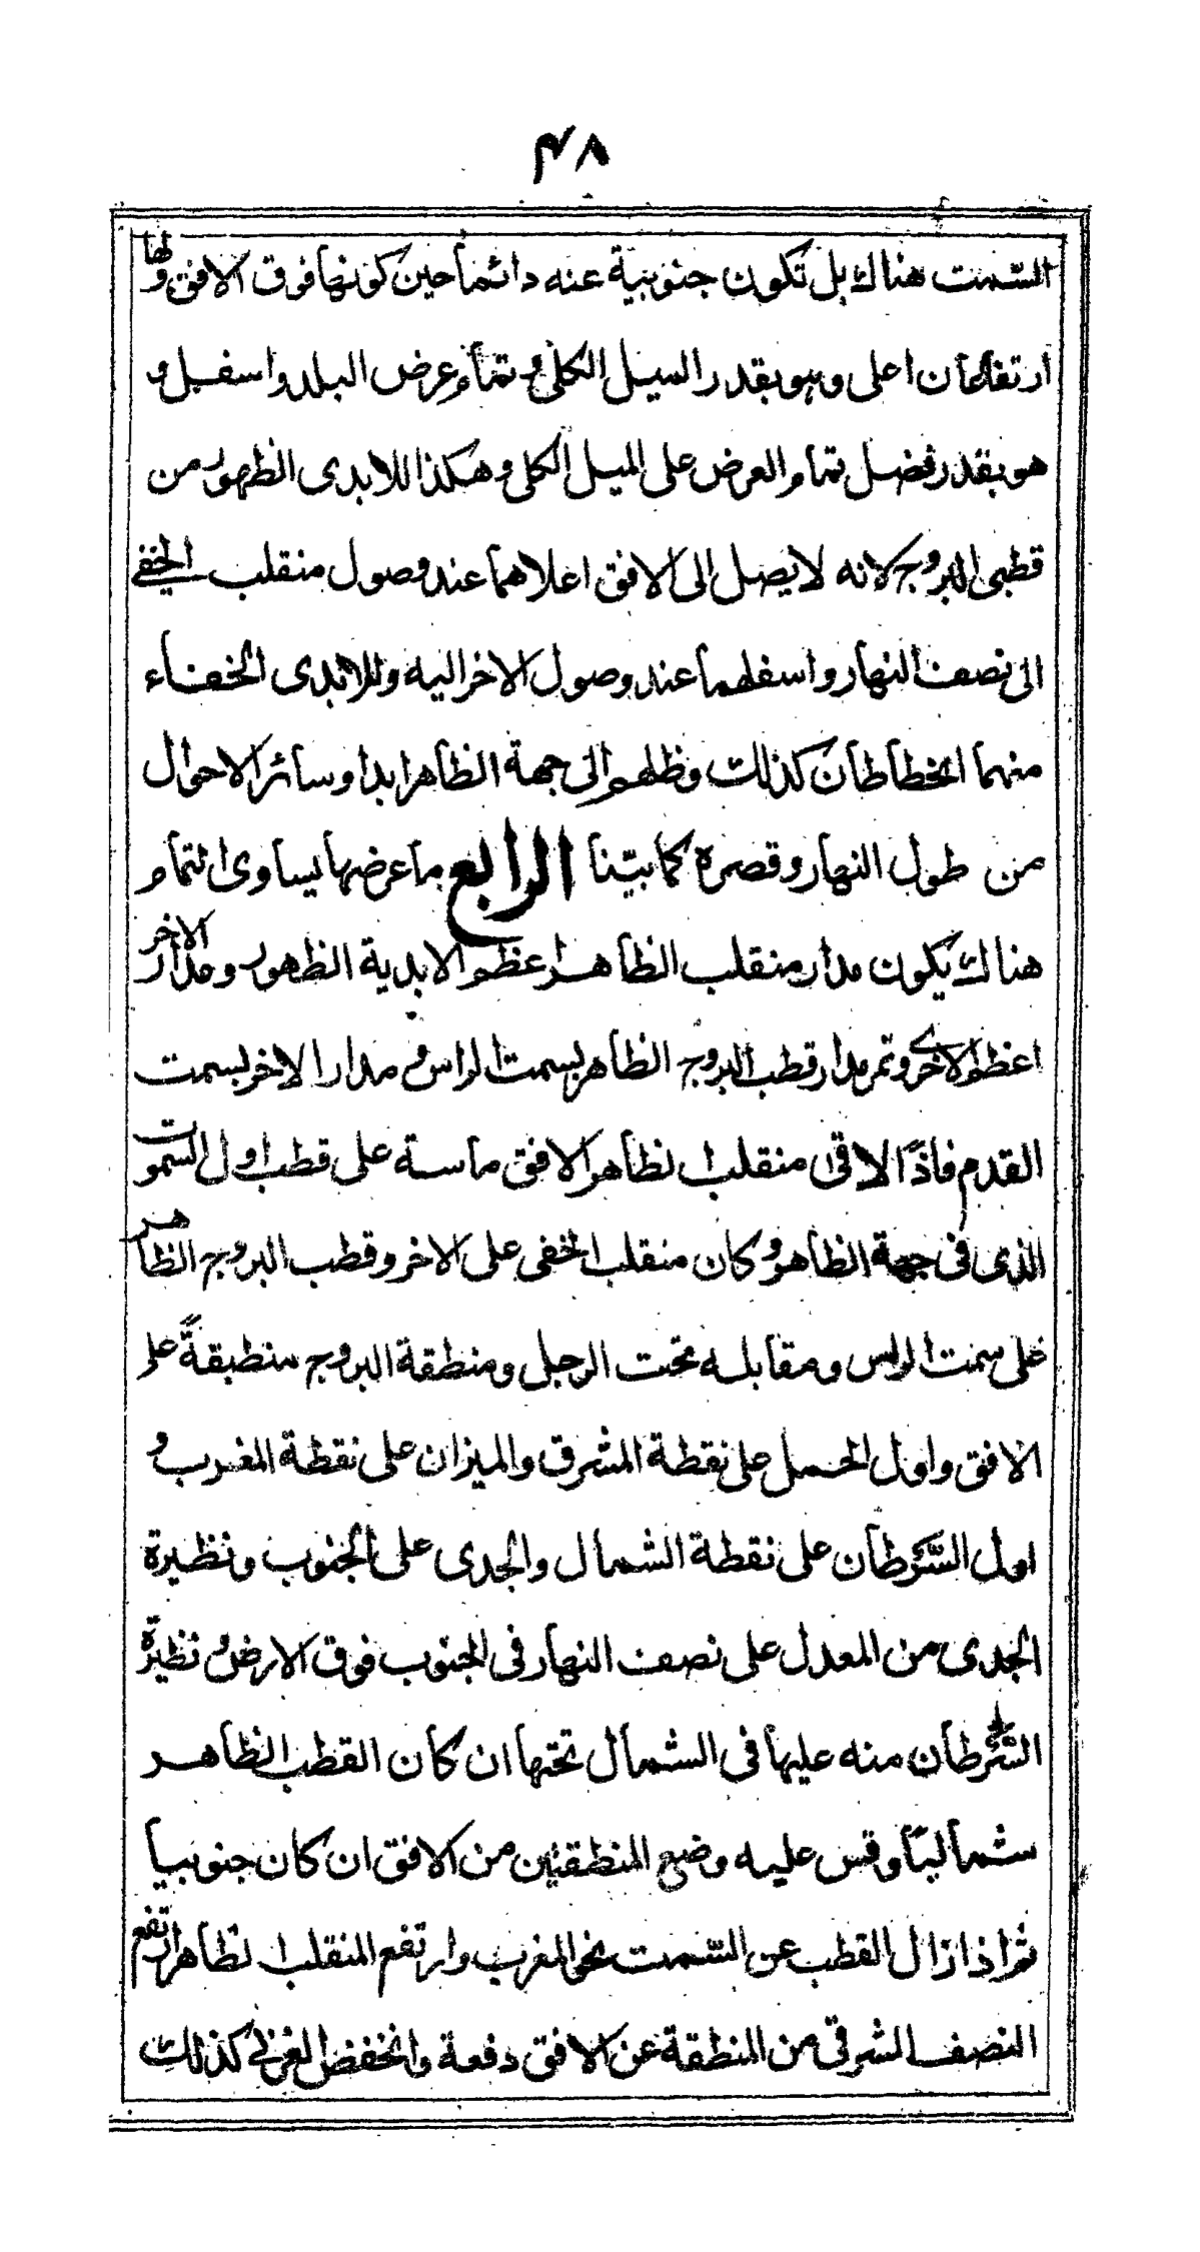 ٤٨
السّمت هناك بل تكون جنوبية عنه دائما حين كونها فوق الافق ولها
ارتفاعان اعلى وهو بقدر الميل الكلى و تمام عرض البلد واسفل و
هو بقدر فضل تمام العرض على الميل الكلى وهكذا للابدى الظهور من
قطبى البروج لانه لا يصل الى الافق اعلاهما عند وصول منقلب الخفي
الى نصف النهار واسفلهما عند وصول الاخر اليه وللابدى الخفاء
منهما انحطاطان كذلك وظلهم الى جهة الظاهر ابدا وسائر الاحوال
من طول النهار وقصره كما بيّنا الرابع ما عرضها يساوى التمام
هنالك يكون مدار منقلب الظاهر اعظم الابدية الظهور ومدار الاخر
اعظم الاخرى وتمر مدار قطب البروج الظاهر بسمت الراس و مدار الاخر بسمت
القدم فاذا لاقى منقلب الظاهر الافق مماسة على قطب اول السموت
الذى فى جهة الظاهر و كان منقلب الخفى على الاخر وقطب البروج الظاهر
على سمت الراس ومقابله تحت الرجل ومنطقة البروج منطبقةً على
الافق واول الحمل على نقطة المشرق والميزان على نقطة المغرب و
اول السّرطان على نقطة الشمال والجدى على الجنوب ونظيرة
الجدى من المعدل على نصف النهار فى الجنوب فوق الارض و نظيرة
السّرطان منه عليها فى الشمال تحتها ان كان القطب الظاهر
شماليّا وقس عليه وضع المنطقتين من الافق ان كان جنوبيا
ثم اذا زال القطب عن السّمت نحو المغرب وارتفع المنقلب الظاهر ارتفع
النصف الشرقى من المنطقة عن الافق دفعة وانخفض الغربى كذلك